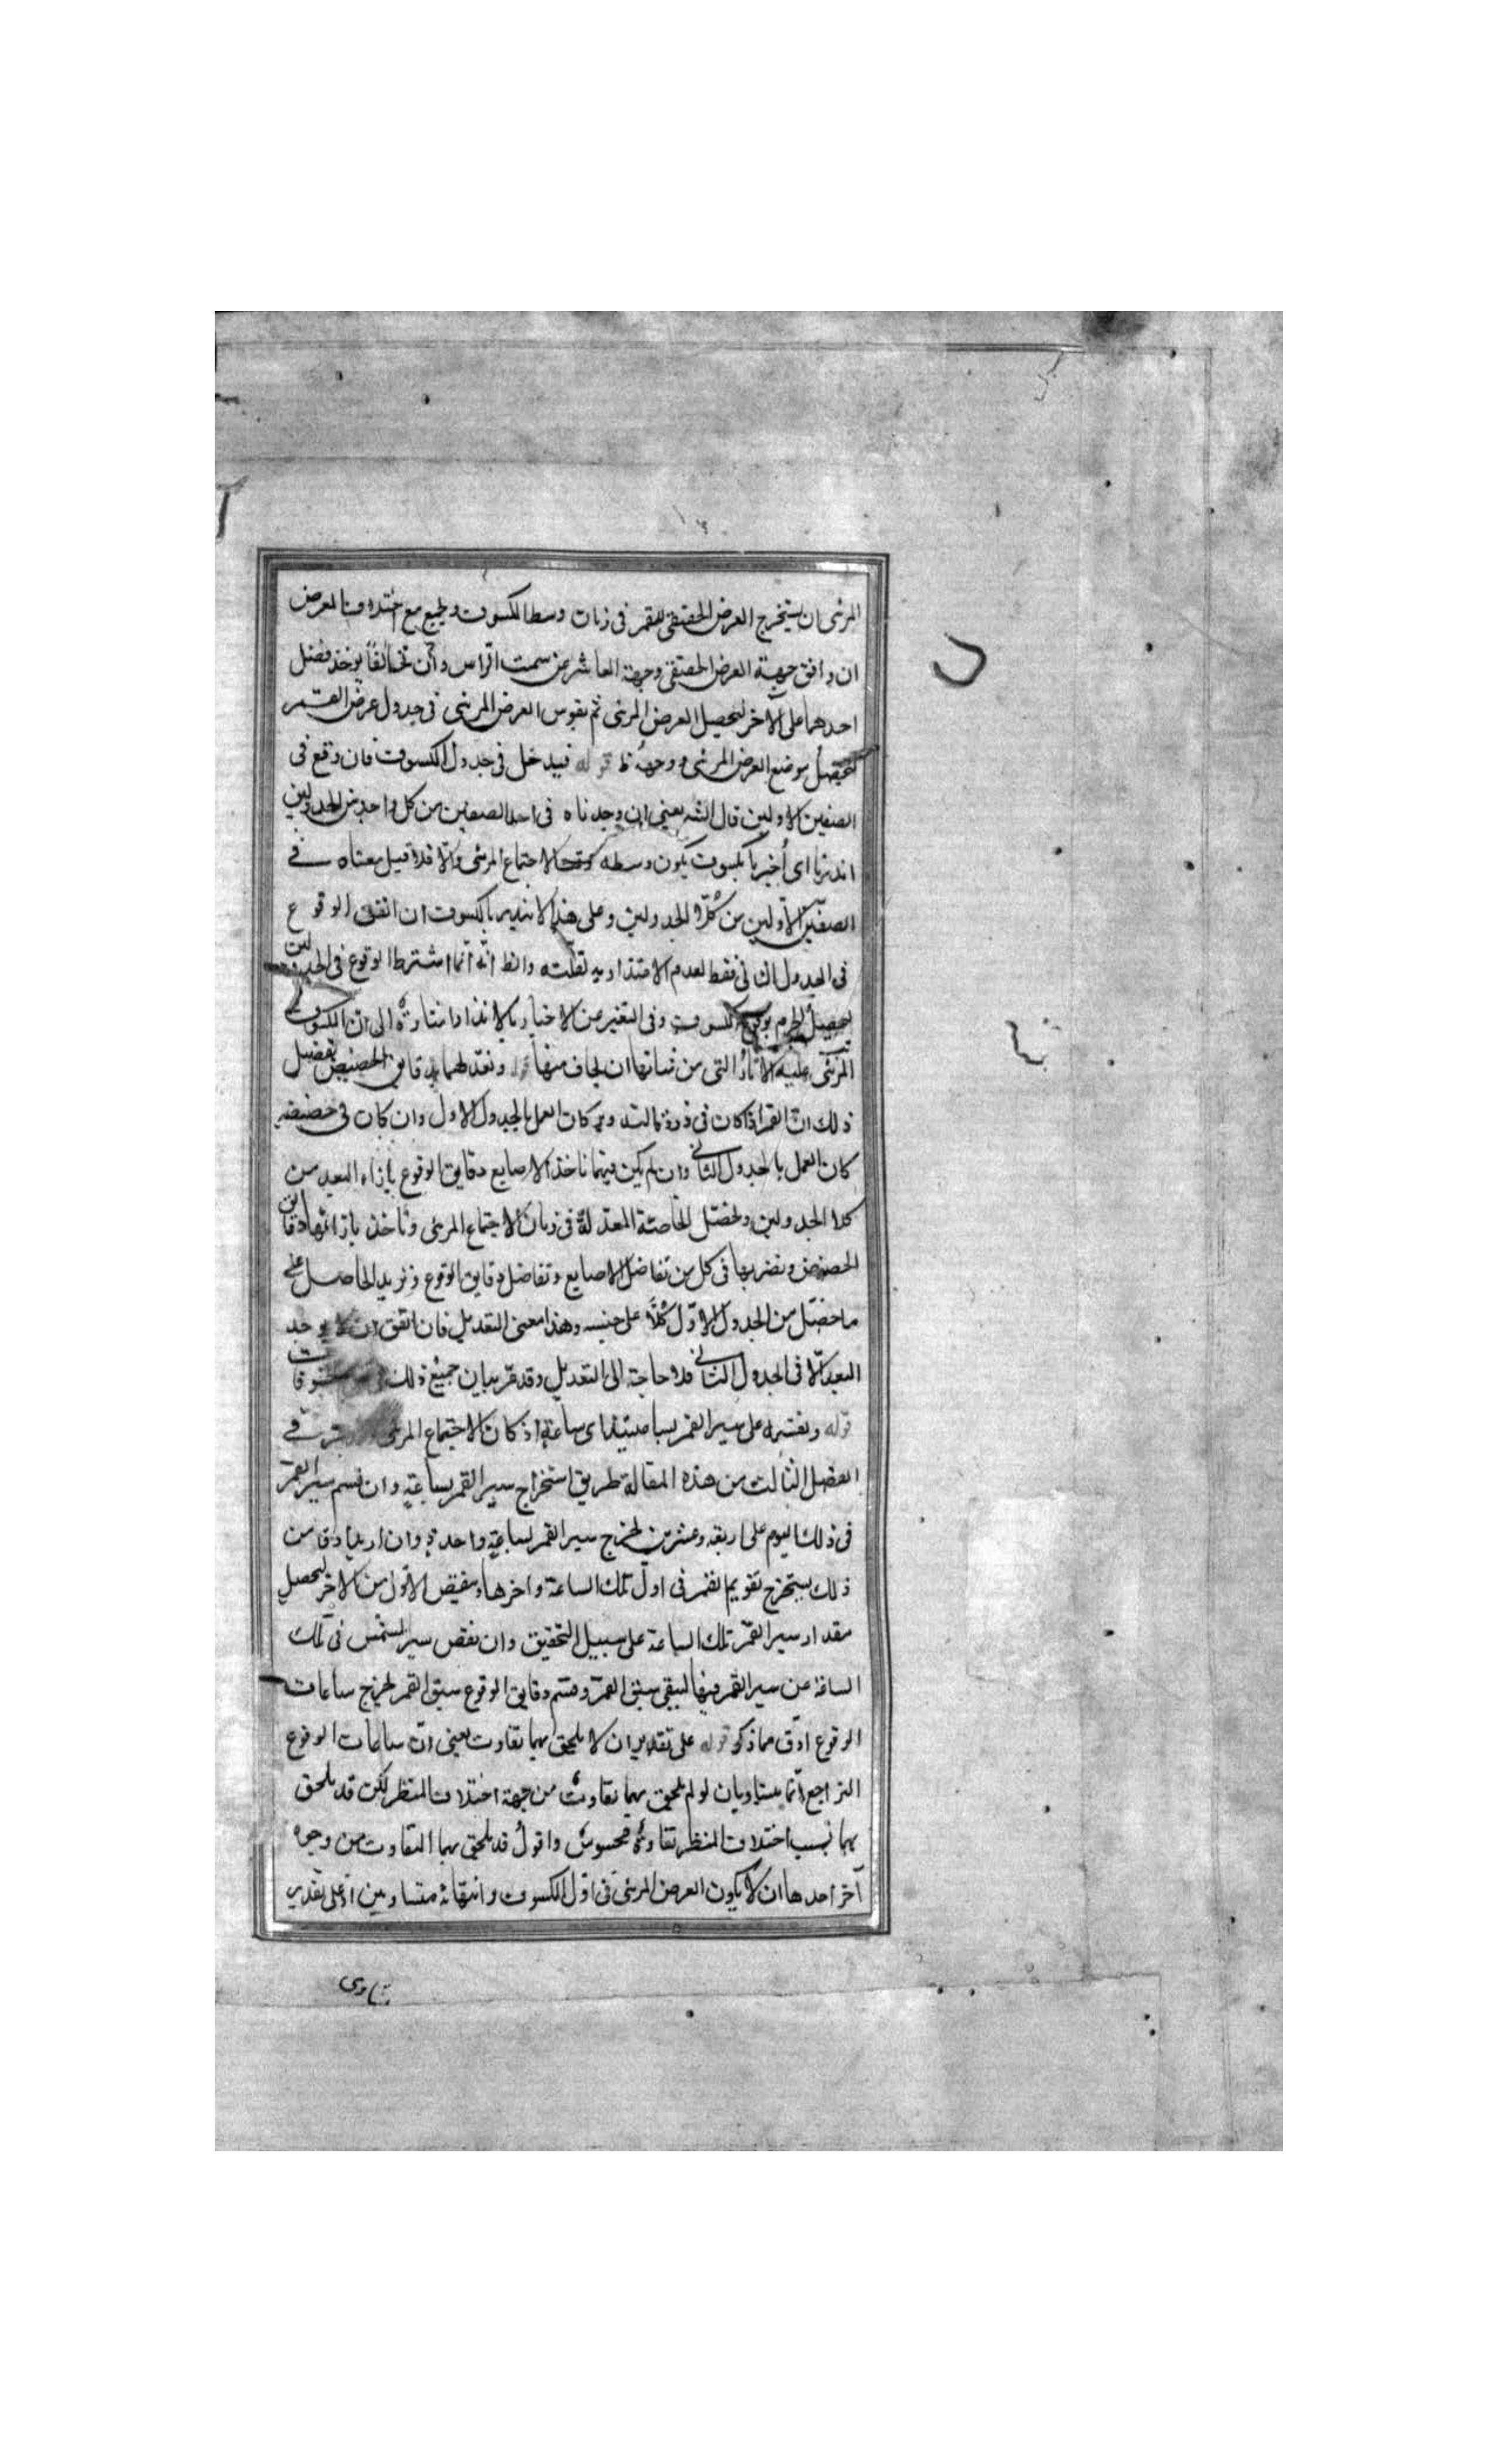 المرئى ان يستخرج العرض الحقيقى للقمر فى زمان وسط الكسوف ويجمع مع اختلاف العرض
ان وافق جهة العرض الحقيقى وجهة العاشر عن سمت الراس وان تخالفا يؤخذ فضل
احدهما على الآخر ليحصل العرض المرئى ثم يقوس العرض المرئى فى جدول عرض القمر
ليحصل موضع العرض المرئى ووجهه ظ قوله فيدخل فى جدول الكسوف فان وقع فى
الصفين الاولين قال الشه يعنى ان وجدناه فى احد الصفين من كل واحد من الجدولين
انذرنا اى أخبرنا بكسوف يكون وسطه الاجتماع المرئى والا فلا قيل معناه فى
الصفين الاولين من كل الجدولين وعلى هذا لا ينذر بالكسوف ان اتفق الوقوع
فى الجدول الثانى فقط لعدم الاعتداد به لقلته والظ انه انما اشترط الوقوع فى الجدولين
ليحصل الجزم بوقوع الكسوف وفى التعبير عن الاخبار بالانذار اشارة الى ان الكسوف
المرئى عليه الآثار التى من شانها ان يخاف منها قوله ونعدلهما بدقايق الحضيض تفصيل
ذلك ان القمر اذا كان فى ذروة التدوير كان العمل بالجدول الاول وان كان فى حضيضه
كان العمل بالجدول الثانى وان لم يكن فيهما ناخذ الاصابع ودقايق الوقوع بازاء البعد من
كلا الجدولين ونحصل الخاصة المعدلة فى زمان الاجتماع المرئى وناخذ بازائها دقايق
الحضيض ونضربها فى كل من تفاضل الاصابع وتفاضل دقايق الوقوع ونزيد الحاصل على
ما حصل من الجدول الاول كلا على جنسه وهذا معنى التعديل فان اتفق ان لا يوجد
البعد الا فى الجدول الثانى فلا حاجة الى التعديل وقد مر بيان جميع ذلك
قوله ونقسمه على سير القمر بساعته اى ساعة اذ كان الاجتماع المرئى فى
الفصل الثالث من هذه المقالة طريق استخراج سير القمر بساعة وان قسم سير القمر
فى ذلك اليوم على اربعة وعشرين لخرج سير القمر لساعة واحدة وان اريد ادق من
ذلك يستخرج تقويم القمر فى اول تلك الساعة واخرها وينقص الاول من الآخر ليحصل
مقدار سير القمر تلك الساعة على سبيل التحقيق وان نقص سير الشمس فى تلك
الساعة من سير القمر فيها ليبقى سبق القمر وقسم دقايق الوقوع سبق القمر لخرج ساعات
الوقوع ادق مما ذكر قوله على تقدير ان لا يلحق بهما تفاوت يعنى ان ساعات الوقوع
التراجع انما يستاويان لو لم يلحق بهما تفاوت من جهة اختلاف المنظر لكن قد يلحق
بهما بسبب اختلاف المنظر تفاوت محسوس واقول قد يلحق بهما التفاوت من وجوه
آخر احدها ان لا يكون العرض المرئى فى اول الكسوف وانتهائه متساويين اذ على تقدير
تساوى